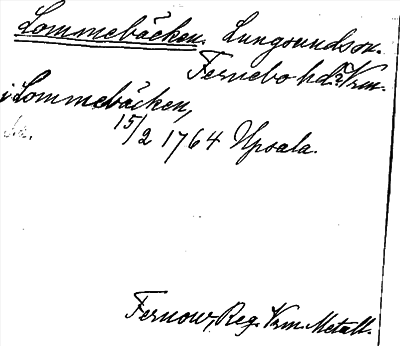 Lommebäcken. Lungsundssn.
Fernebo hd. Vrm.
i Lommebäcken,
15/2 1764 Upsala.
Fernow, Reg. Vrm. Metall.